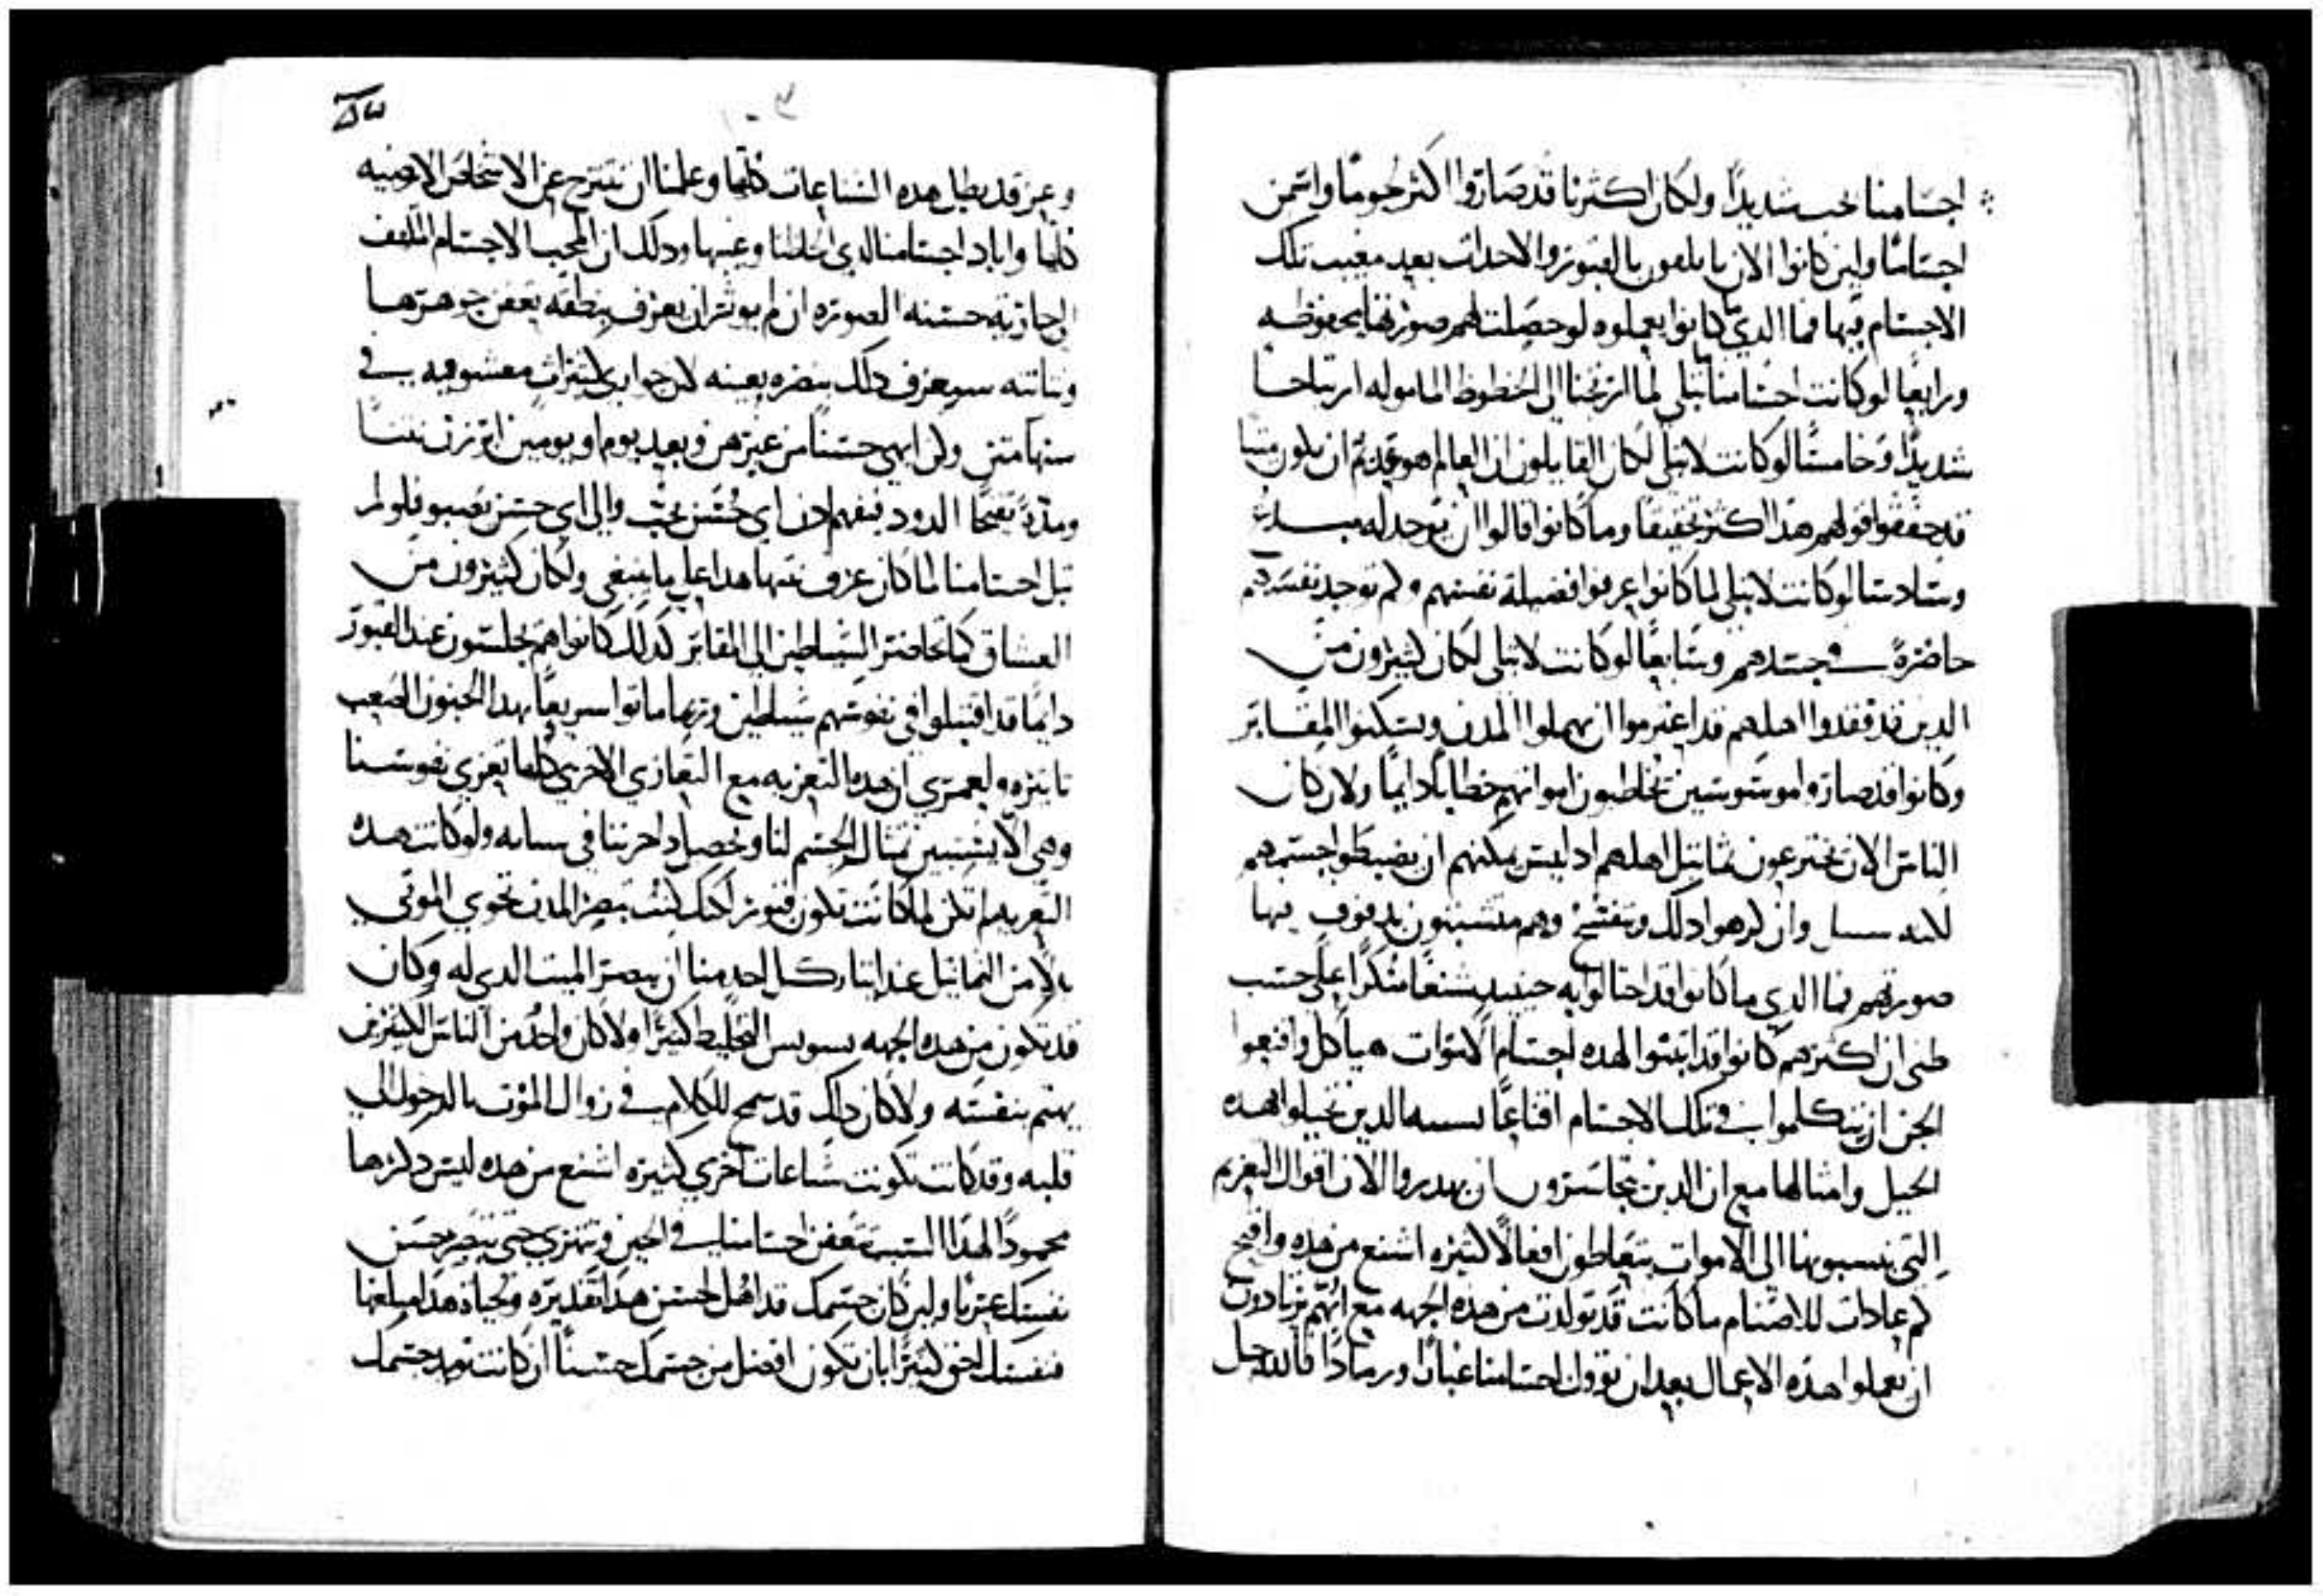 اجسامنا نحب شديدًا ولكان اكثرنا قد صاروا اكثر لحومًا واسمن
اجسامًا ولين كانوا الان يلقون بالقبور والاحداث بعد مغيب تلك
الاجسام فيها فما الذي كانوا يعملوه لو حصلت لهم صورتها محفوظه
ورابعًا لو كانت اجسامنا تبلي لما ارتحنا الي الحظوظ الماموله ارتياحًا
شديدًا وخامسًا لو كانت لا تبلي لكان القايلون ان العالم هو قديم ان يكون
قد حققوا قولهم هذا اكثر تحقيقًا وما كانوا قالوا ان يوجد له مبدع
وسادسًا لو كانت لا تبلي لما كانوا عرفوا فضيلة نفسهم ولم توجد نفسهم
حاضرة في جسدهم وسابعًا لو كانت لا تبلي لكان كثيرون من
الدين قد فقدوا اهلهم قد اعتزموا ان يهملوا المدن ويسكنوا المقابر
وكانوا قد صاروا موسوسين يخاطبون امواتهم خطابًا دايمًا ولان كان
الناس الان يخترعون تماثيل اهلهم اد ليس يمكنهم ان يضبطوا جسمهم
لانه وان كرهوا دلك ويتفسخ وهم متشبتون بها
صورتهم فما الدي ما كانوا قد احتالوا به حينيد شنعًا منكرًا علي حسب
ظني ان اكثرهم كانوا قد ابتنوا لهده اجسام الاموات هياكل واقنعوا
الجن ان يتكلموا في تلك الاجسام اقناعًا الدين تخيلوا هده
الحيل وامثالها مع ان الدين يتجاسرون ان يهدروا الان اقوال العزيم
التي ينسبونها الي الاموات يتعاطون افعالًا كثيره اشنع من هده واقبح
كم عادات للاصنام ما كانت قد تولدت من هده الجهه مع انهم يزدادون
ان يعملوا هده الاعمال بعد ان تؤول اجسامنا غبارًا ورمادًا فالله جل
وعز قد بطل هده الشناعات كلها وعلمنا ان ننتزح عن الاشخاص الارضيه
كلها واباد اجسامنا الدي وعيبها ودلك ان المحب الاجسام
الجاريه حسنه الصوره ان لم يوثر ان يعرف بنطقه تعفن جوهرها
ونتانته سيعرف دلك بنظره بعينه لان جواري كثيرات معشوقيه في
سنها متن ولن ابهي حسنًا من غيرهن وبعد يوم او يومين ابرزن نتنًا
ومدة تفتحًا الدود فتفهم ادن اي حسن تحب والي اي حسن تصبو فلو لم
تبل اجسامنا لما كان عرف نتنها هدا علي ما ينبغي ولكان كثيرون من
العشاق كما تحاضر الشياطين الي المقابر كدلك كانوا هم يجلسون عند القبور
دايمًا قد اقتبلوا في نفوسهم شياطين وربما ماتوا سريعًا بهدا الجنون الصعب
تاثيره ولعمري ان هده التعزيه مع التعازي الاخري كلها تعزي نفوسنا
وهي الا يستبين تمثال الجسم لنا ويحصل داحزننا في نسيانه ولو كانت هده
التعزيه لم تكن لما كانت تكون قبور لكنك كنت تبصر المدن تحوي الموتي
بدلًا من التماثيل عند ايثار كل احد منا ان يبصر الميت الدي له وكان
قد تكون من هده الجهه التخليط كثيرًا ولا كان واحد من الناس الكثيرين
يهتم بنفسه ولا كان دلك قد سمح للكلام في زوال الموت بالدخول الي
قلبه وقد كانت تكونت شناعات اخري كثيره اشنع من هده ليس دكرها
محمودًا لهدا السبب تتعفن اجسامنا في الحين وتتهري حتي تبصر حسن
نفسك عريًا ولين كان جسمك قد اهل لحسن هدا تقديره ولحياة هدا مبلغها
فنفسك احق كثيرًا بان تكون افضل من جسمك حسنًا ان كانت تمد جسمك